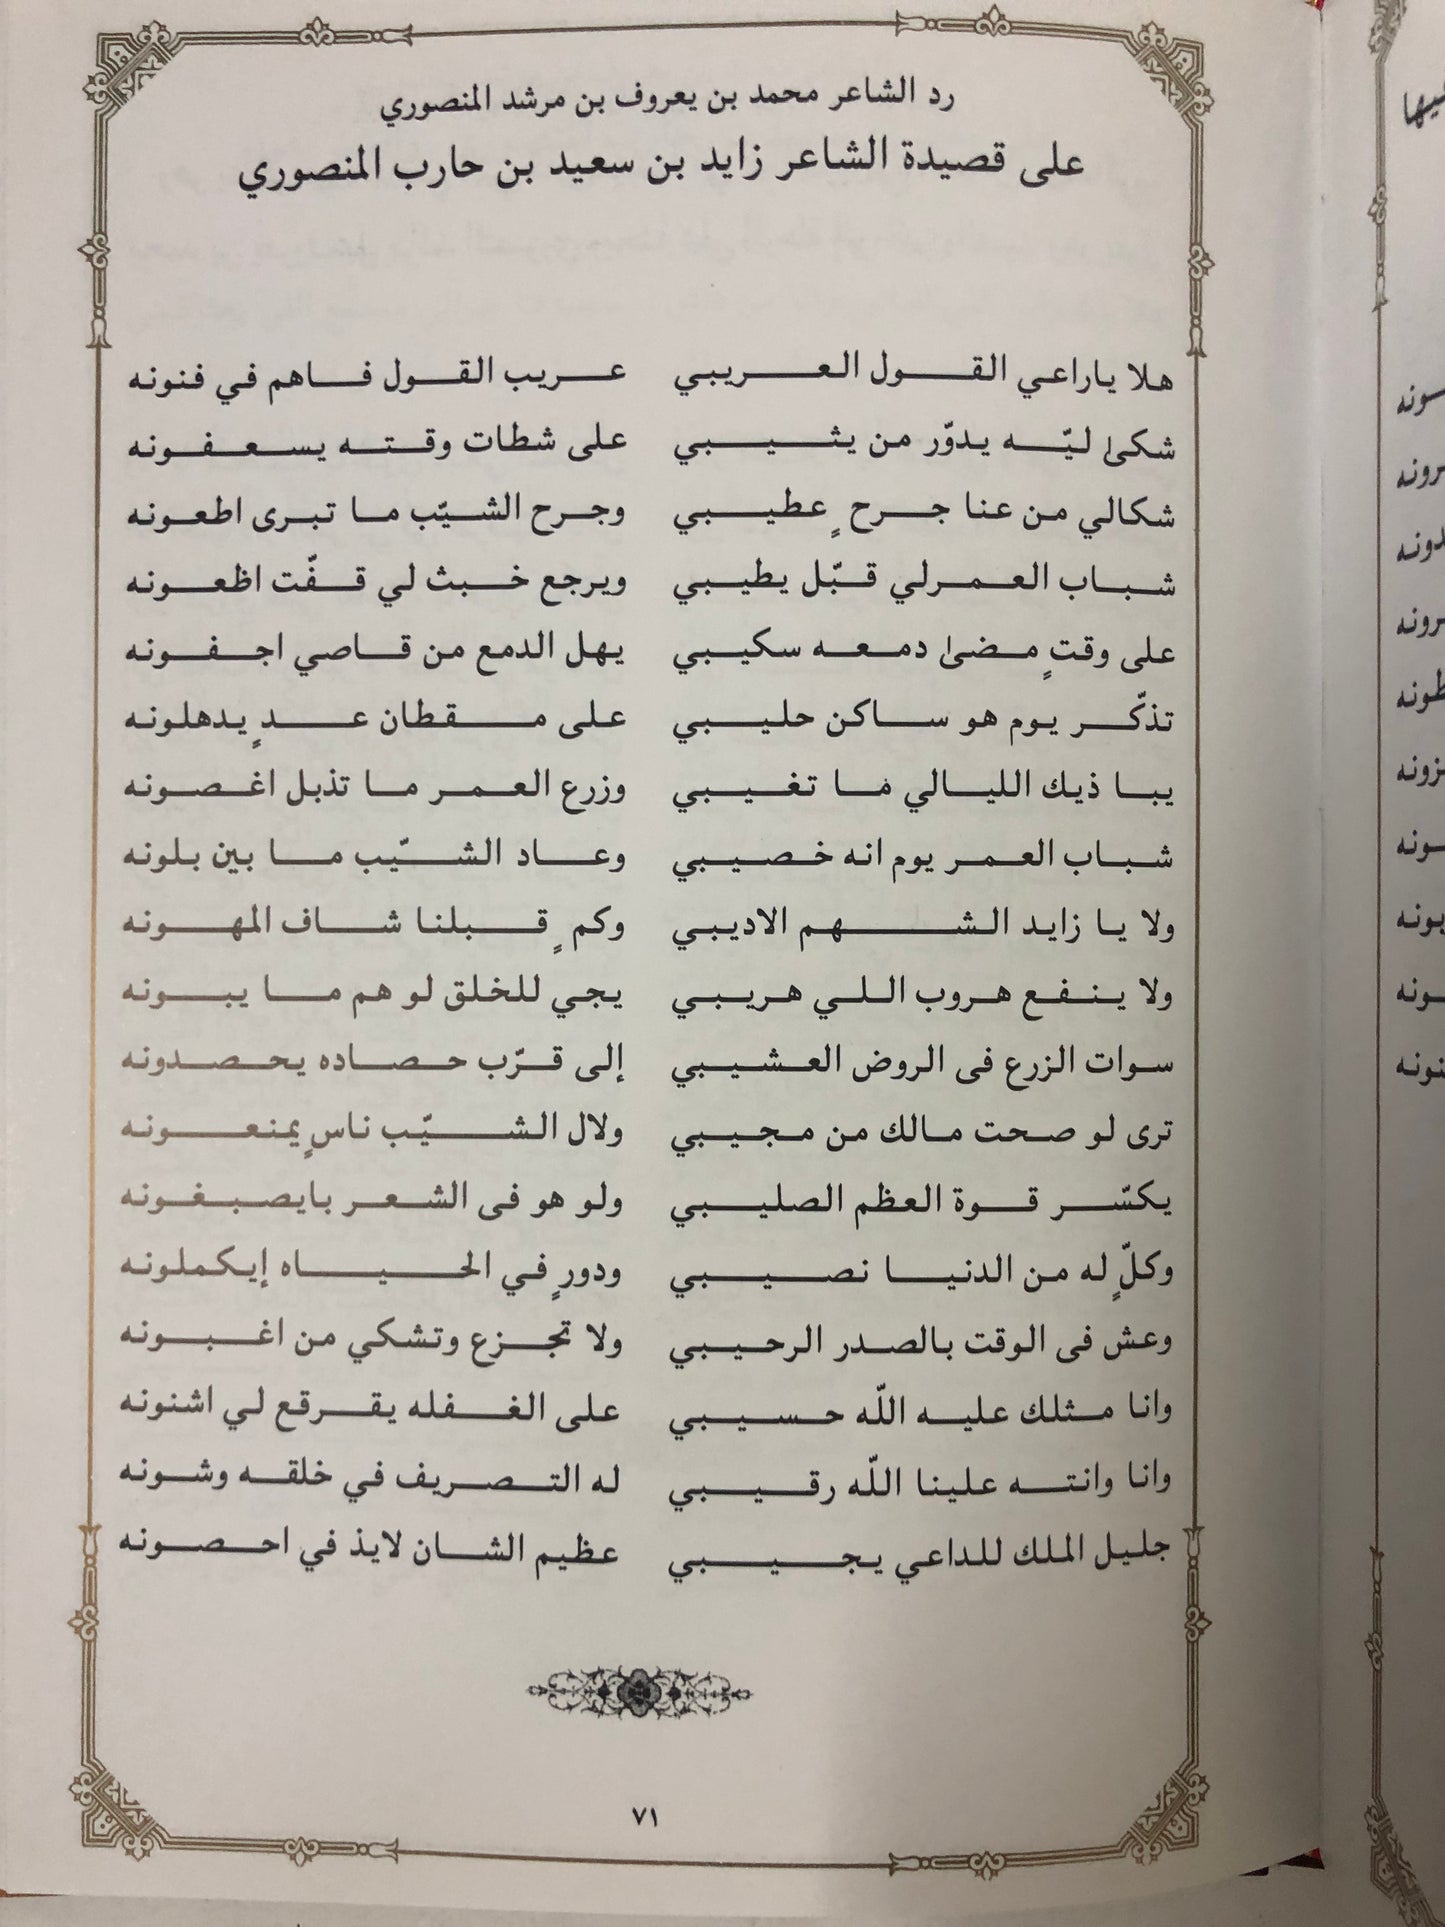 رد الشاعر محمد بن يعروف بن مرشد المنصوري
على قصيدة الشاعر زايد بن سعيد بن حارب المنصوري
هلا ياراعي القول العريبي عريب القول فاهم في فنونه
شكىٰ ليّه يدوّر من يثيبي على شطات وقته يسعفونه
شكالي من عنا جرحٍ عطيبي وجرح الشيّب ما تبرى اطعونه
شباب العمرلي قبّل يطيبي ويرجع خبث لي قفّت اظعونه
على وقتٍ مضىٰ دمعه سكيبي يهل الدمع من قاصي اجفونه
تذكّر يوم هو ساكن حليبي على مقطان عدٍ يدهلونه
يبا ذيك الليالي ما تغيبي وزرع العمر ما تذبل اغصونه
شباب العمر يوم انه خصيبي وعاد الشيّب ما بين بلونه
ولا يا زايد الشهم الاديبي وكمٍ قبلنا شاف المهونه
ولا ينفع هروب اللي هريبي يجي للخلق لو هم ما يبونه
سوات الزرع فى الروض العشيبي إلى قرّب حصاده يحصدونه
ترى لو صحت مالك من مجيبي ولال الشيّب ناسٍ يمنعونه
يكسّر قوة العظم الصليبي ولو هو فى الشعر بايصبغونه
وكلٍّ له من الدنيا نصيبي ودورٍ في الحياه إيكملونه
وعش فى الوقت بالصدر الرحيبي ولا تجزع وتشكي من اغبونه
وانا مثلك عليه اللّه حسيبي على الغفله يقرقع لي اشنونه
وانا وانته علينا اللّه رقيبي له التصريف في خلقه وشونه
جليل الملك للداعي يجيبي عظيم الشان لايذ في احصونه
٧١